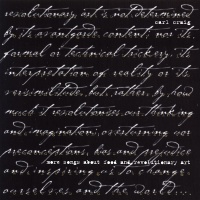 revolutionary art is not determined
by its avantgarde content, nor its
carl craig
formal or technical trickery, its
interpretation of reality or its
verisimilitude, but, rather, by how
much it revolutionizes our thinking
and imagination; overturning our
preconceptions, bias and prejudice
more songs about food and revolutionary art
and inspiring us to change
ourselves and the world...